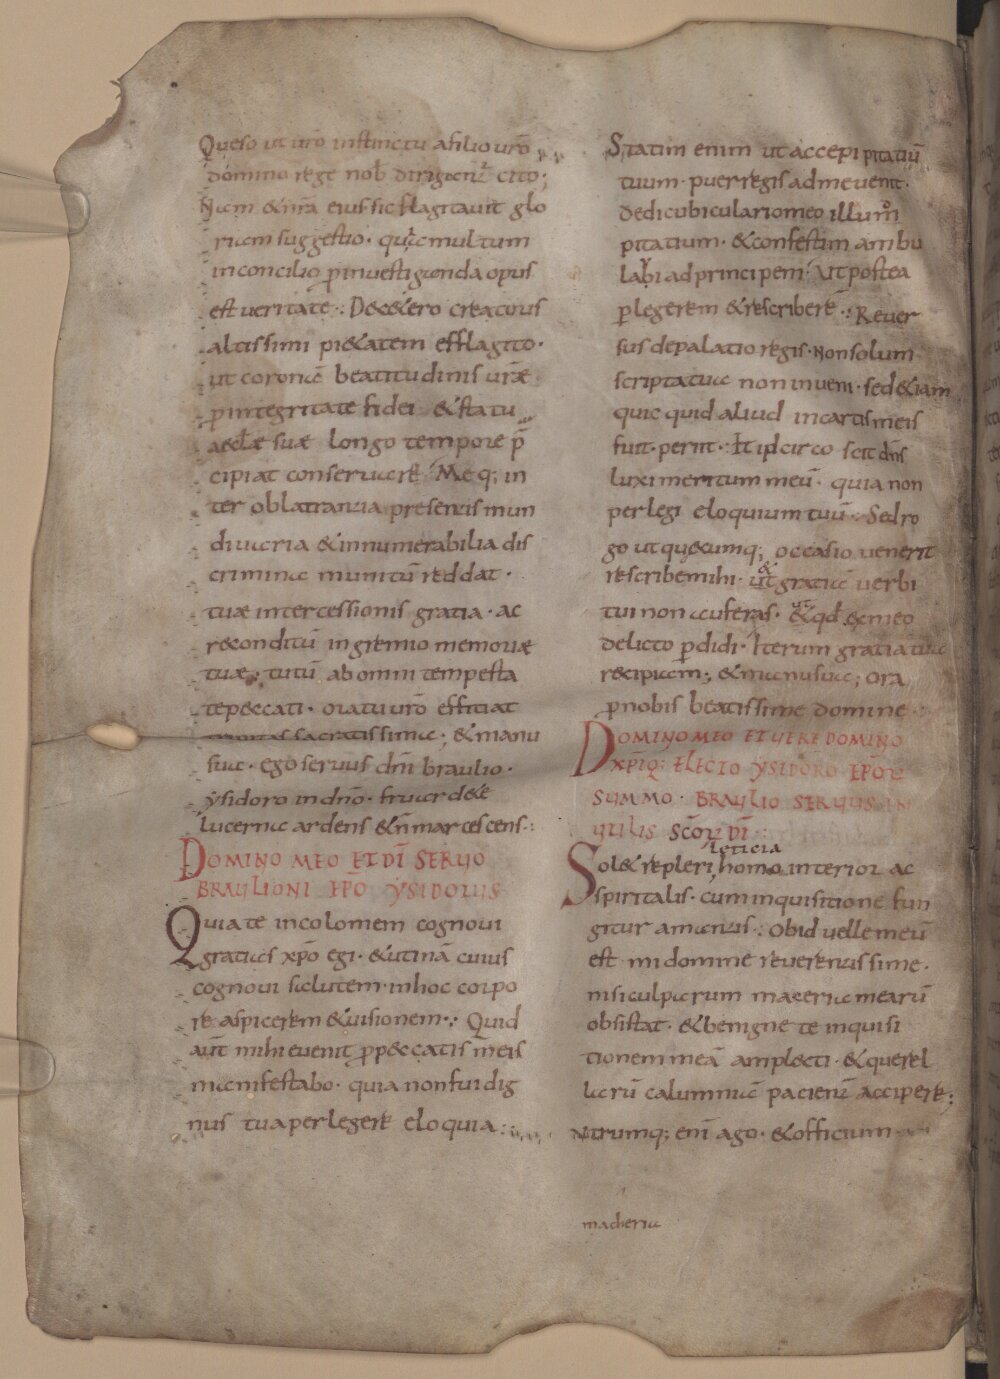 Queso ut uro instinctu afilio uro
domino rege nob dirigatur cito;
Nam & nra eius sic flagitauit glo
riam suggestio. quia multum
inconcilio pinuestiganda opus
est ueritate.: De&ero creatoris
altissimi pi&atem efflagito.
ut coronã beatitudinis uræ
pintegritate fidei & statu
aeclæ suæ longo tempore p̄
cipiat conseruare Meq; in
ter oblatrantia presentis mun
di uicria & innumerabilia dis
crimina munitū reddat.
tuæ intercessionis gratia. ac
reconditū ingremio memoriæ
tuæ; tutū ab omni tempesta
te peccati. oratu uro efficiat
trinitas sacratissima; & manu
sua. ego seruus dn̄i braulio.
ysidoro indno. fruar de&e
lucerna ardens & n̄ marcescens.:
DOMINO MEO ET DĪ SERUO
BRAULIONI EPO YSIDORUS
Quia te incolomem cognoui
gratias xpo egi. & utinā cuius
cognoui salutem. in hoc corpo
re aspicerem & uisionem.: Quid
aūt mihi euenit p̄peccatis meis
manifestabo. quia non fui dig
nus tua perlegere eloquia.:
Statim enim ut accepi pitatiū
tuum. puer regis ad me uenit.
dedi cubiculario meo illum
pitatium. & confestim ambu
labi ad principem. Ut postea
plegerem & rescriberē.: Reuer
sus de palatio regis. Non solum
scripta tua non inueni. sed & iam
quic quid aliud incartis meis
fuit. periit.: Et idcirco scit dn̄s
luxi meritum meū. quia non
perlegi eloquium tuū.: Sed ro
go ut quæcumq; occasio uenerit
rescribe mihi. ut & gratiã uerbi
tui non auferas. ut & qd ex meo
delicto pdidi. Iterum gratia tua
recipiam; & manu sua; Ora
pnobis beatissime domine.
DOMINO MEO ET UERE DOMINO
XPIQ: ELECTO YSIDORO EPOR̄
SUMMO. BRAULIO SERUUS IN
UTILIS SCOR̄ DĪ:
leticia
Sol& repleri homo interior ac
spiritalis. cum inquisitione fun
gitur amantis.: Ob id uelle meū
est mi domine reuerentissime.
nisi culparum maceria mearū
obsistat. & benigne te inquisi
tionem meā amplecti. & querel
larū calumniã pacienť accipere;
Utrumq; enī ago. & officium
macheria